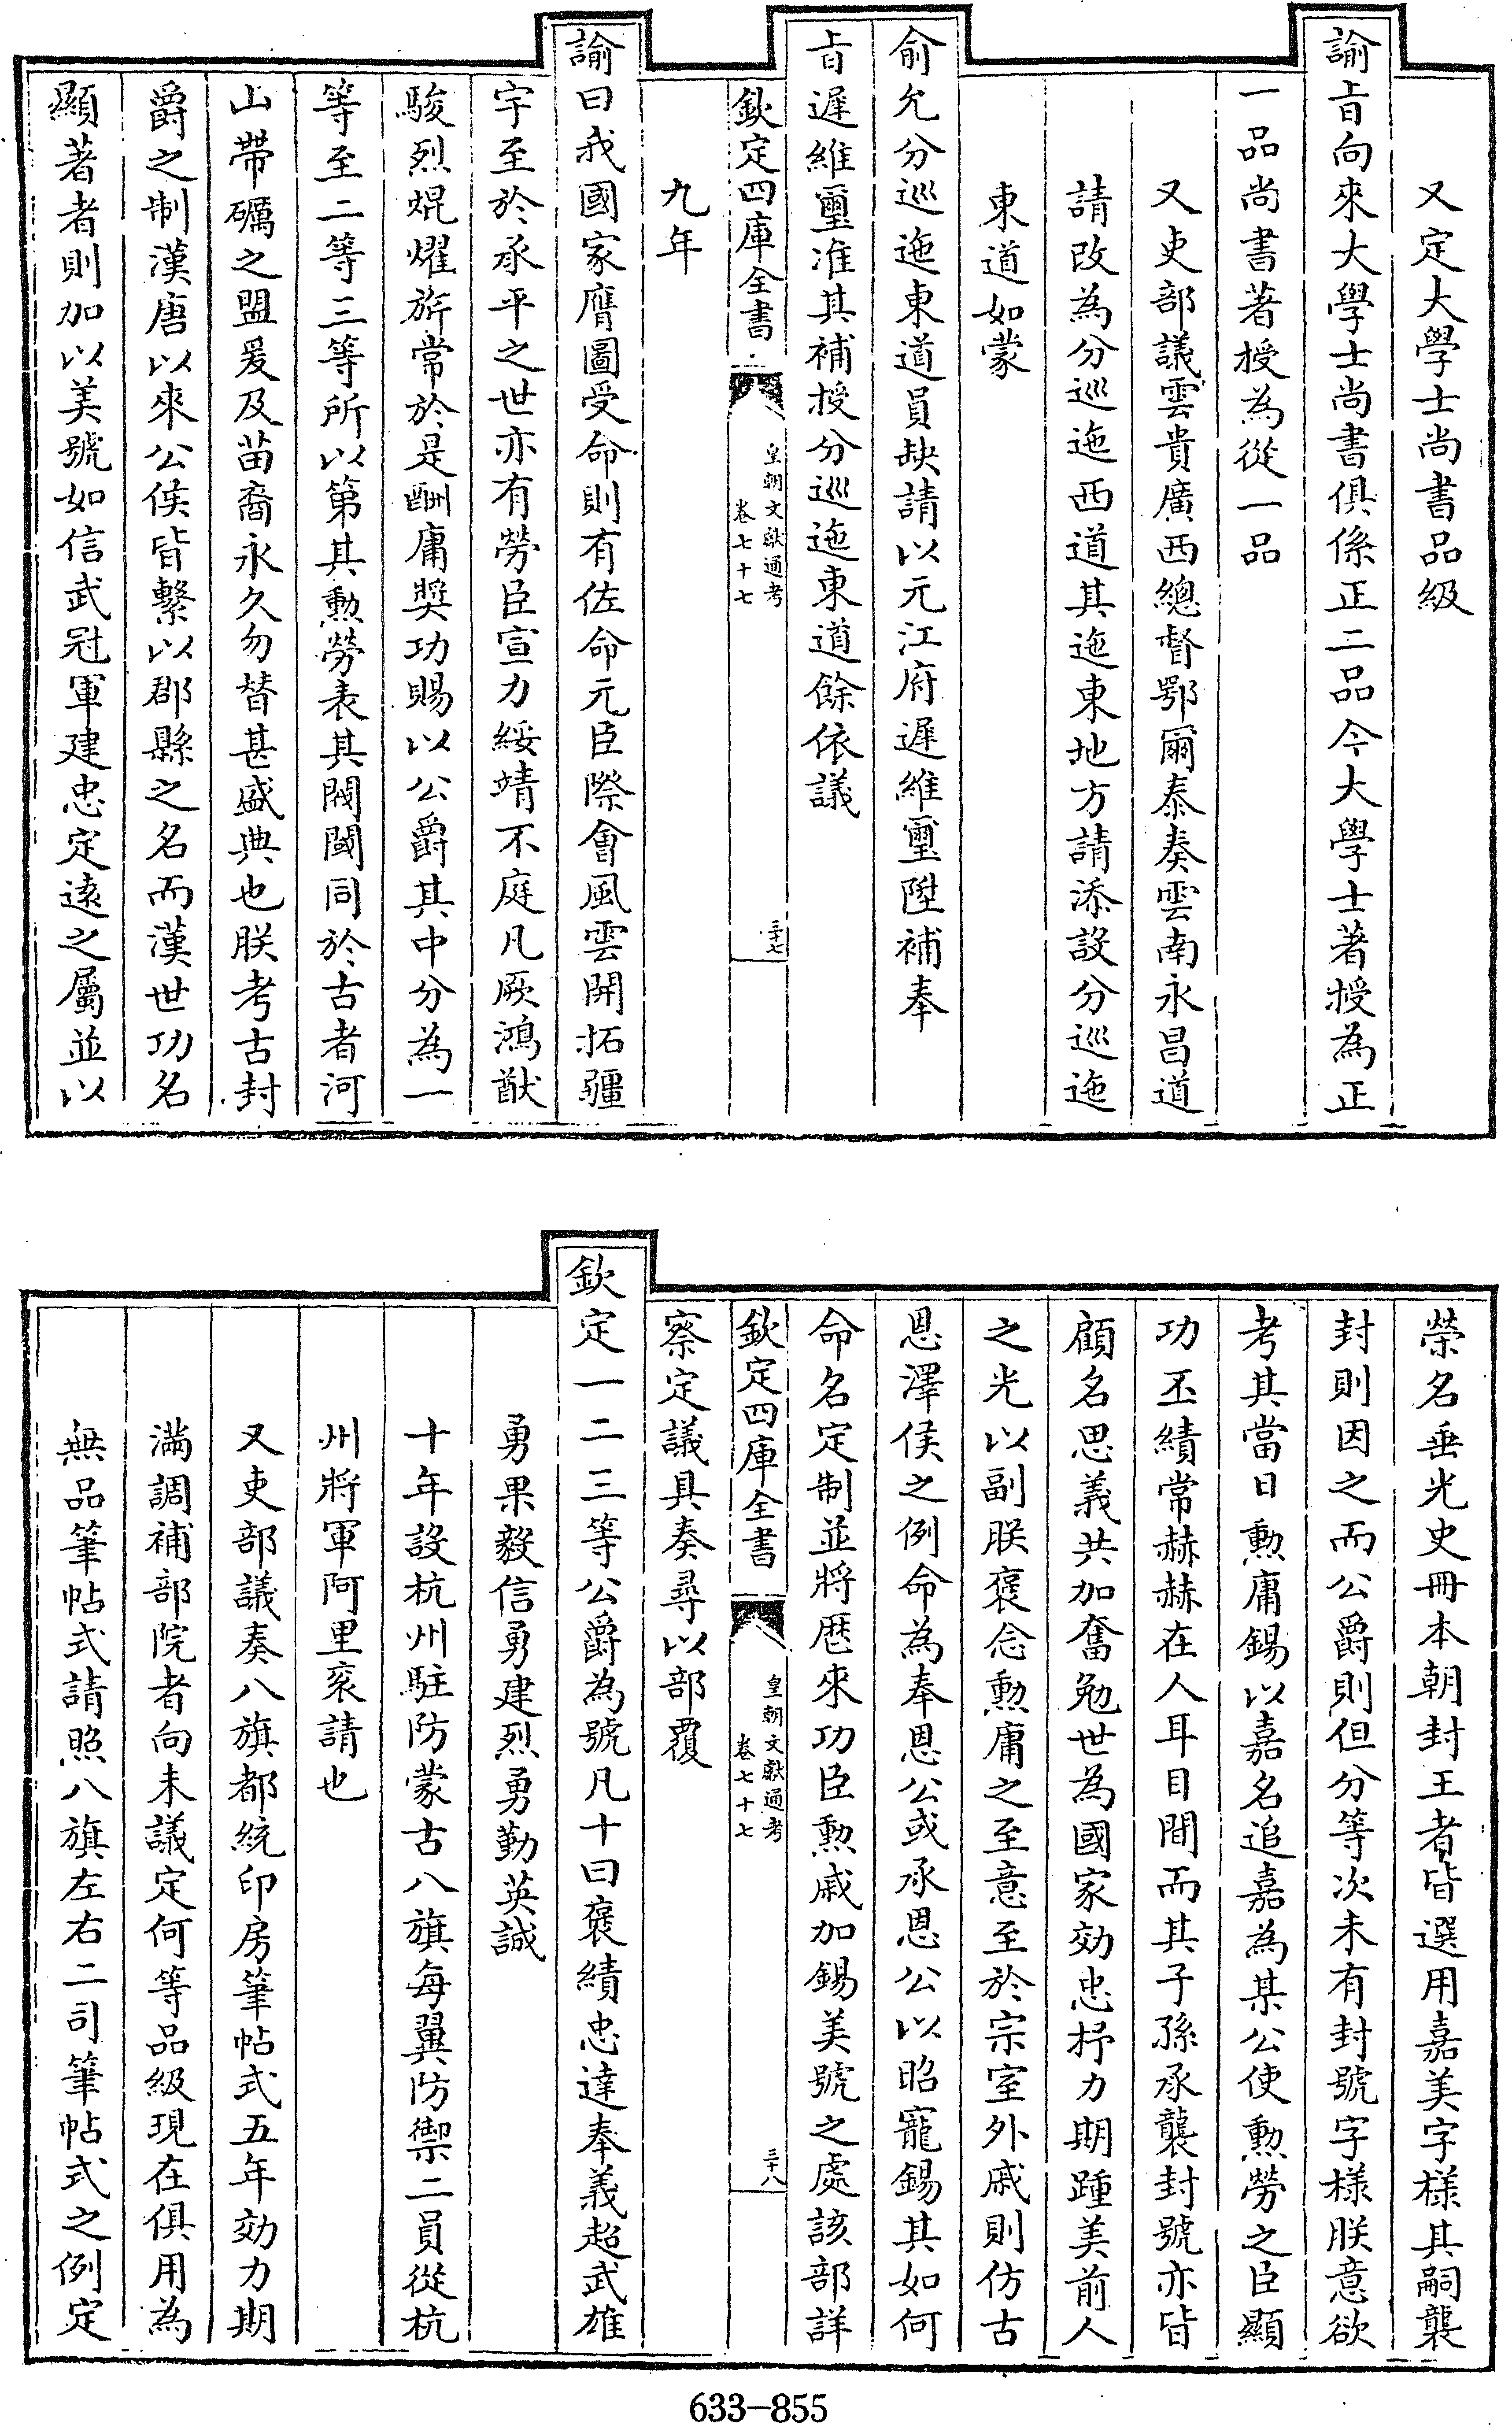 又定大學士尚書品級
諭㫖向來大學士尚書俱係正二品今大學士著授為正
一品尚書著授為從一品
又吏部議雲貴廣西總督鄂爾泰奏雲南永昌道
請改為分巡迤西道其迤東地方請添設分巡迤
東道如蒙
俞允分巡迤東道員缺請以元江府遲維璽陞補奉
㫖遲維璽准其補授分巡迤東道餘依議
欽定四庫全書
皇朝文獻通考
卷七十七
三十七
九年
諭曰我國家膺圖受命則有佐命元臣際會風雲開拓疆
宇至於承平之世亦有勞臣宣力綏靖不庭凡厥鴻猷
駿烈焜燿旂常於是酬庸奬功賜以公爵其中分為一
等至二等三等所以第其勲勞表其閥閱同於古者河
山帶礪之盟爰及苗裔永久勿替甚盛典也朕考古封
爵之制漢唐以來公侯皆繫以郡縣之名而漢世功名
顯著者則加以美號如信武冠軍建忠定遠之屬並以
榮名垂光史冊本朝封王者皆選用嘉美字樣其嗣襲
封則因之而公爵則但分等次未有封號字樣朕意欲
考其當日勲庸錫以嘉名追嘉為某公使勲勞之臣顯
功丕績常赫赫在人耳目間而其子孫承襲封號亦皆
顧名思義共加奮勉世為國家効忠抒力期踵美前人
之光以副朕褒念勲庸之至意至於宗室外戚則仿古
恩澤侯之例命為奉恩公或承恩公以昭寵錫其如何
命名定制並將歴來功臣勲戚加錫美號之處該部詳
欽定四庫全書
皇朝文獻通考
卷七十七
三十八
察定議具奏尋以部覆
欽定一二三等公爵為號凡十曰褒績忠達奉義超武雄
勇果毅信勇建烈勇勤英誠
十年設杭州駐防蒙古八旗每翼防禦二員從杭
州將軍阿里衮請也
又吏部議奏八旗都統印房筆帖式五年効力期
滿調補部院者向未議定何等品級現在俱用為
無品筆帖式請照八旗左右二司筆帖式之例定
633-855